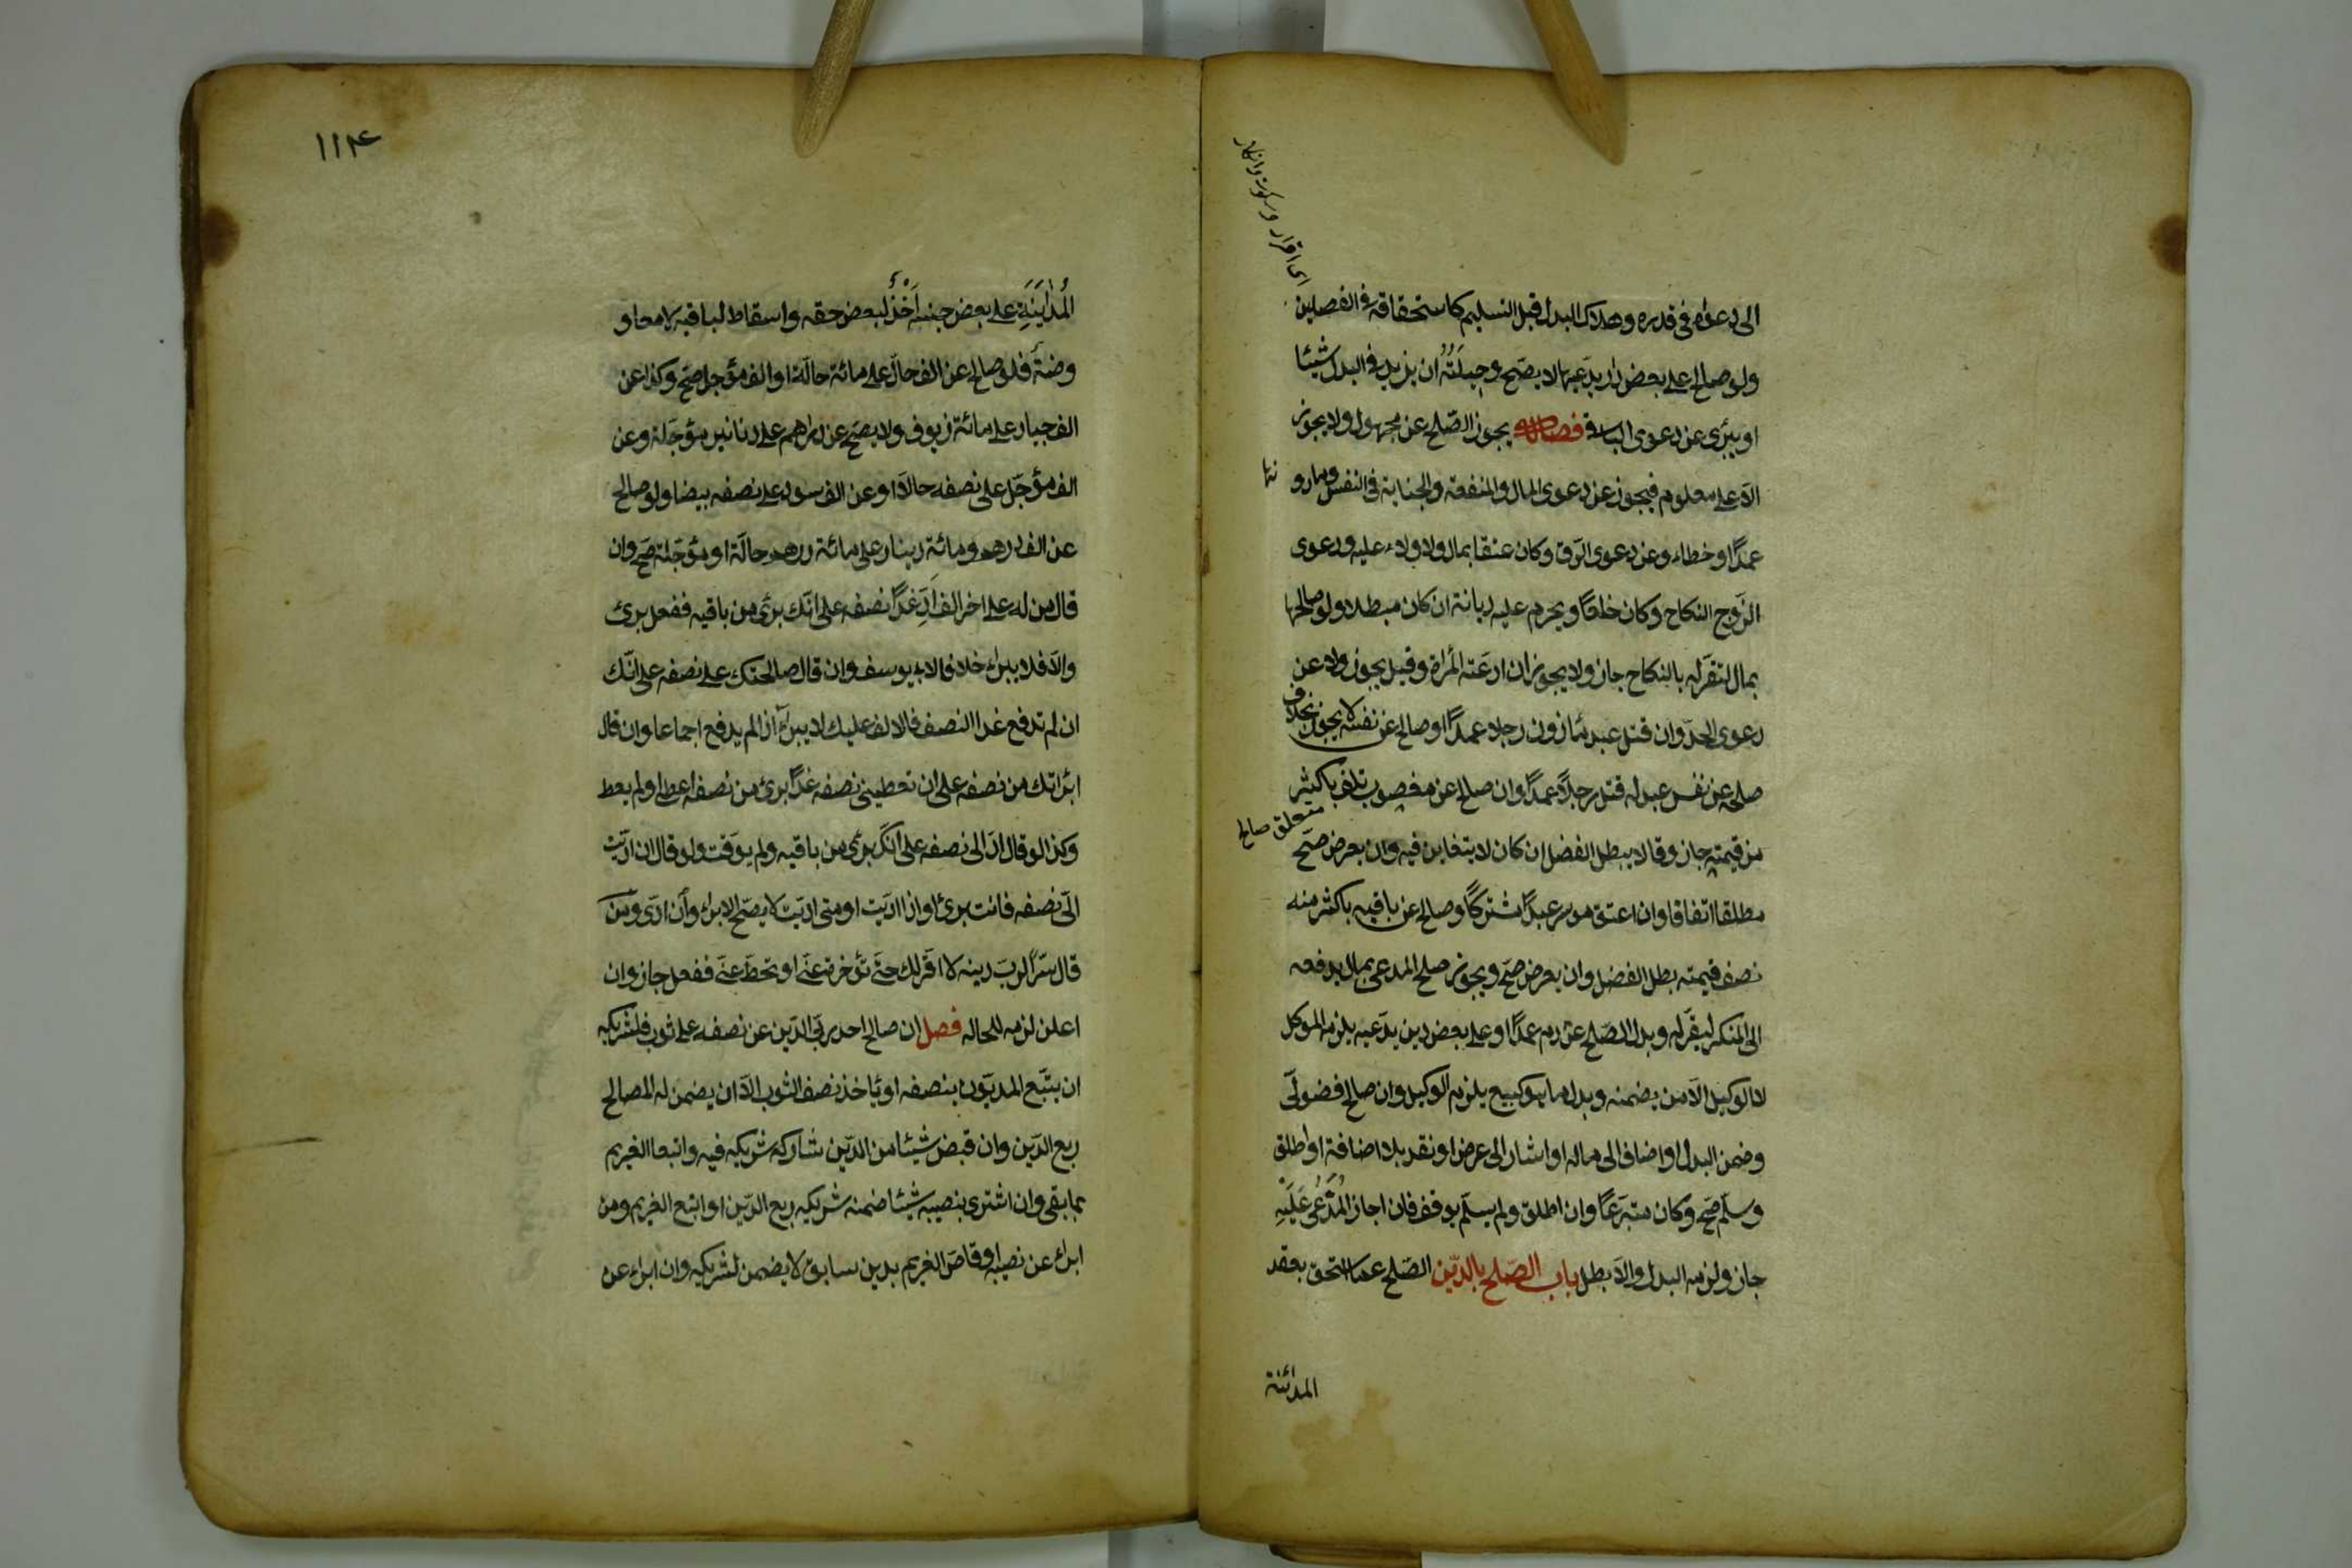 اى اقرار وسكوت وانكار
الى دعواه فى قدره وهلاك البدل قبل التسليم كاستحقاقه فى الفصلين
ولو صالح على بعض دار يدّعيها لا يصّح وحيلَتُهُ ان يزيد فى البدل شيئا
او يبرئ عن دعوى الباقى فصل يجوز الصّلح عن مجهول ولا يجوز
الاّ على معلوم فيجوز عن دعوى المال والمنفعة والجناية فى النفس وما دو
نها
عمدًا او خطاء وعن دعوى الرّق وكان عتقا بمال ولا ولاء عليه ودعوى
الزّوج النكاح وكان خلعًا ويحرم عليه ديانة ان كان مبطلا ولو صالحها
بمال لتقرّ له بالنكاح جاز ولا يجوز ان ادعَته المرأة وقيل يجوز ولا عن
دعوى الحدّ وان قتل عبد مأذون رجلا عمدًا وصالح عن نفسه لا يجوز بخلاف
صلحه عن نفس عبد له قتل رجلاً عمدًا وان صالح عن مغصوب تلف باكثر
متعلق صالح
من قيمته جاز وقالا يبطل الفضل ان كان لا يتغابن فيه وان بعرض صّح
مطلقا اتفاقا وان اعتق موسر عبدًا مشتركًا وصالح عن باقيه باكثر منه
نصف قيمته بطل الفضل وان بعرض صّح ويجوز صلح المدعى بمال يدفعه
الى المنكر ليقرّ له وبدل الصّلح عن دم عمدًا او على بعض دين يدّعيه يلزم الموكل
لا الوكيل الاّ من يضمنه وبدل ما هو كبيع يلزم الوكيل وان صالح فضولّى
وضمن البدل او اضاف الى ماله او اشار الى عرض او نقد بلا اضافة او اطلق
وسلّم صّح وكان متبرّعًا وان اطلق ولم يسلّم يوقف فان اجاز المُدَّعى عَلَيْهِ
جاز ولزمه البدل والاّ بطل باب الصّلح بالدّين الصّلح عما استحق بعقد
المدائنة
١١٤
المُدَايَنَةِ على بعض جنسه اَخْذٌ لبعض حقه واسقاط لباقيه لا معاو
وضةً فلو صالح عن الف حالّ على مائة حالّة او الف مؤجل صّح وكذا عن
الف جياد على مائة زيوف ولا يصّح عن دراهم على دنانير مؤجّلة وعن
الف مؤجّل على نصفه حالاّ او عن الف سود على نصفه بيضا ولو صالح
عن الف درهم ومائة دينار على مائة درهم حالّة او مؤجّلة صّح وان
قال من له على اخر الف اَدِّ غدًا نصفه على انّك برئ من باقيه ففعل برئ
والاّ فلا يبرأ خلافا لابى يوسف وان قال صالحتك على نصفه على انّك
ان لم تدفع غدا النصف فالالف عليك لا يبرأ اذا لم يدفع اجماعا وان قال
ابرأتك من نصفه على ان تعطينى نصفه غدًا برئ من نصفه اعطى او لم يعط
وكذا لو قال ادّ الى نصفه على انّك برئ من باقيه ولم يوقّت ولو قال ان ادّيت
الىّ نصفه فانت برئ او اذا ادّيت او متى ادّيت لا يصّح الابراء وان ادّى ومن
قال سرًّا لربّ دينه لا اقرّ لك حتّى تؤخره عنّى او تحطّ عنّى ففعل جاز وان
اعلن لزمه للحال فصل ان صالح احد ربّى الدّين عن نصفه على ثوب فلشريكه
ان يتّبع المديون بنصفه او يأخذ نصف الثوب الاّ ان يضمن له المصالح
ربع الدّين وان قبض شيئا من الدّين شاركه شريكه فيه واتبعا الغريم
بما بقى وان اشترى بنصيبه شيئا ضمنه شريكه ربع الدّين او اتبع الغريم ومن
ابرأ عن نصيبه او قاصّ الغريم بدين سابق لا يضمن لشريكه وان ابرأ عن